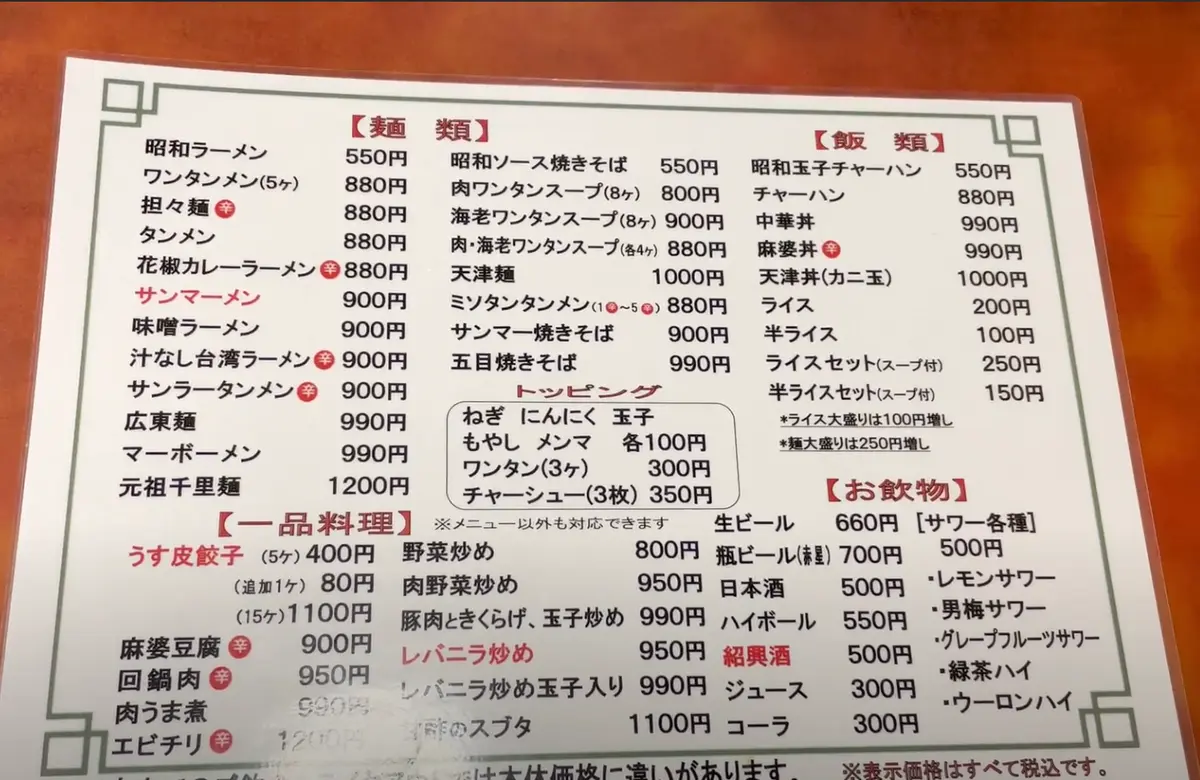 【麺 類】
昭和ラーメン 550円
ワンタンメン(5ヶ) 880円
担々麺辛 880円
タンメン 880円
花椒カレーラーメン辛 880円
サンマーメン 900円
味噌ラーメン 900円
汁なし台湾ラーメン辛 900円
サンラータンメン辛 900円
広東麺 990円
マーボーメン 990円
元祖千里麺 1200円
昭和ソース焼きそば 550円
肉ワンタンスープ(8ヶ) 800円
海老ワンタンスープ(8ヶ) 900円
肉・海老ワンタンスープ(各4ヶ) 880円
天津麺 1000円
ミソタンタンメン(1辛～5辛) 880円
サンマー焼きそば 900円
五目焼きそば 990円
トッピング
ねぎ にんにく 玉子
もやし メンマ 各100円
ワンタン(3ヶ) 300円
チャーシュー(3枚) 350円
【飯 類】
昭和玉子チャーハン 550円
チャーハン 880円
中華丼 990円
麻婆丼辛 990円
天津丼(カニ玉) 1000円
ライス 200円
半ライス 100円
ライスセット(スープ付) 250円
半ライスセット(スープ付) 150円
*ライス大盛りは100円増し
*麺大盛りは250円増し
【一品料理】 ※メニュー以外も対応できます
うす皮餃子 (5ヶ) 400円
(追加1ヶ) 80円
(15ヶ) 1100円
麻婆豆腐辛 900円
回鍋肉辛 950円
肉うま煮 990円
エビチリ辛 1200円
野菜炒め 800円
肉野菜炒め 950円
豚肉ときくらげ、玉子炒め 990円
レバニラ炒め 950円
レバニラ炒め玉子入り 990円
酢のスブタ 1100円
【お飲物】
生ビール 660円
瓶ビール(赤星) 700円
日本酒 500円
ハイボール 550円
紹興酒 500円
ジュース 300円
コーラ 300円
[サワー各種]
500円
・レモンサワー
・男梅サワー
・グレープフルーツサワー
・緑茶ハイ
・ウーロンハイ
は本体価格に違いがあります。 ※表示価格はすべて税込です。